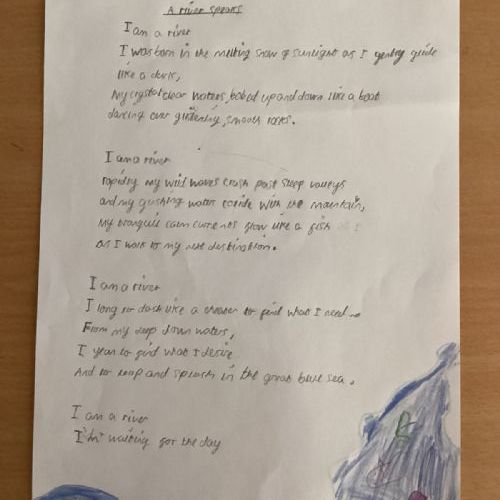 A river speaks
I am a river
I was born in the melting snow of sunlight as I gently glide
like a duck,
My crystal clear waters, bobed up and down like a boat
dancing over glistening, smooth rocks.
I am a river
rapidly my wild waves crash past steep valleys
and my gushing water collide with the mountain,
My tranquil calm currents flow like a fish
as I wait to my next destination.
I am a river
I long to dash like a cheater to find what I need
From my deep down waters,
I year to find what I desire
And to leap and splash in the great blue sea.
I am a river
I'm waiting for the day